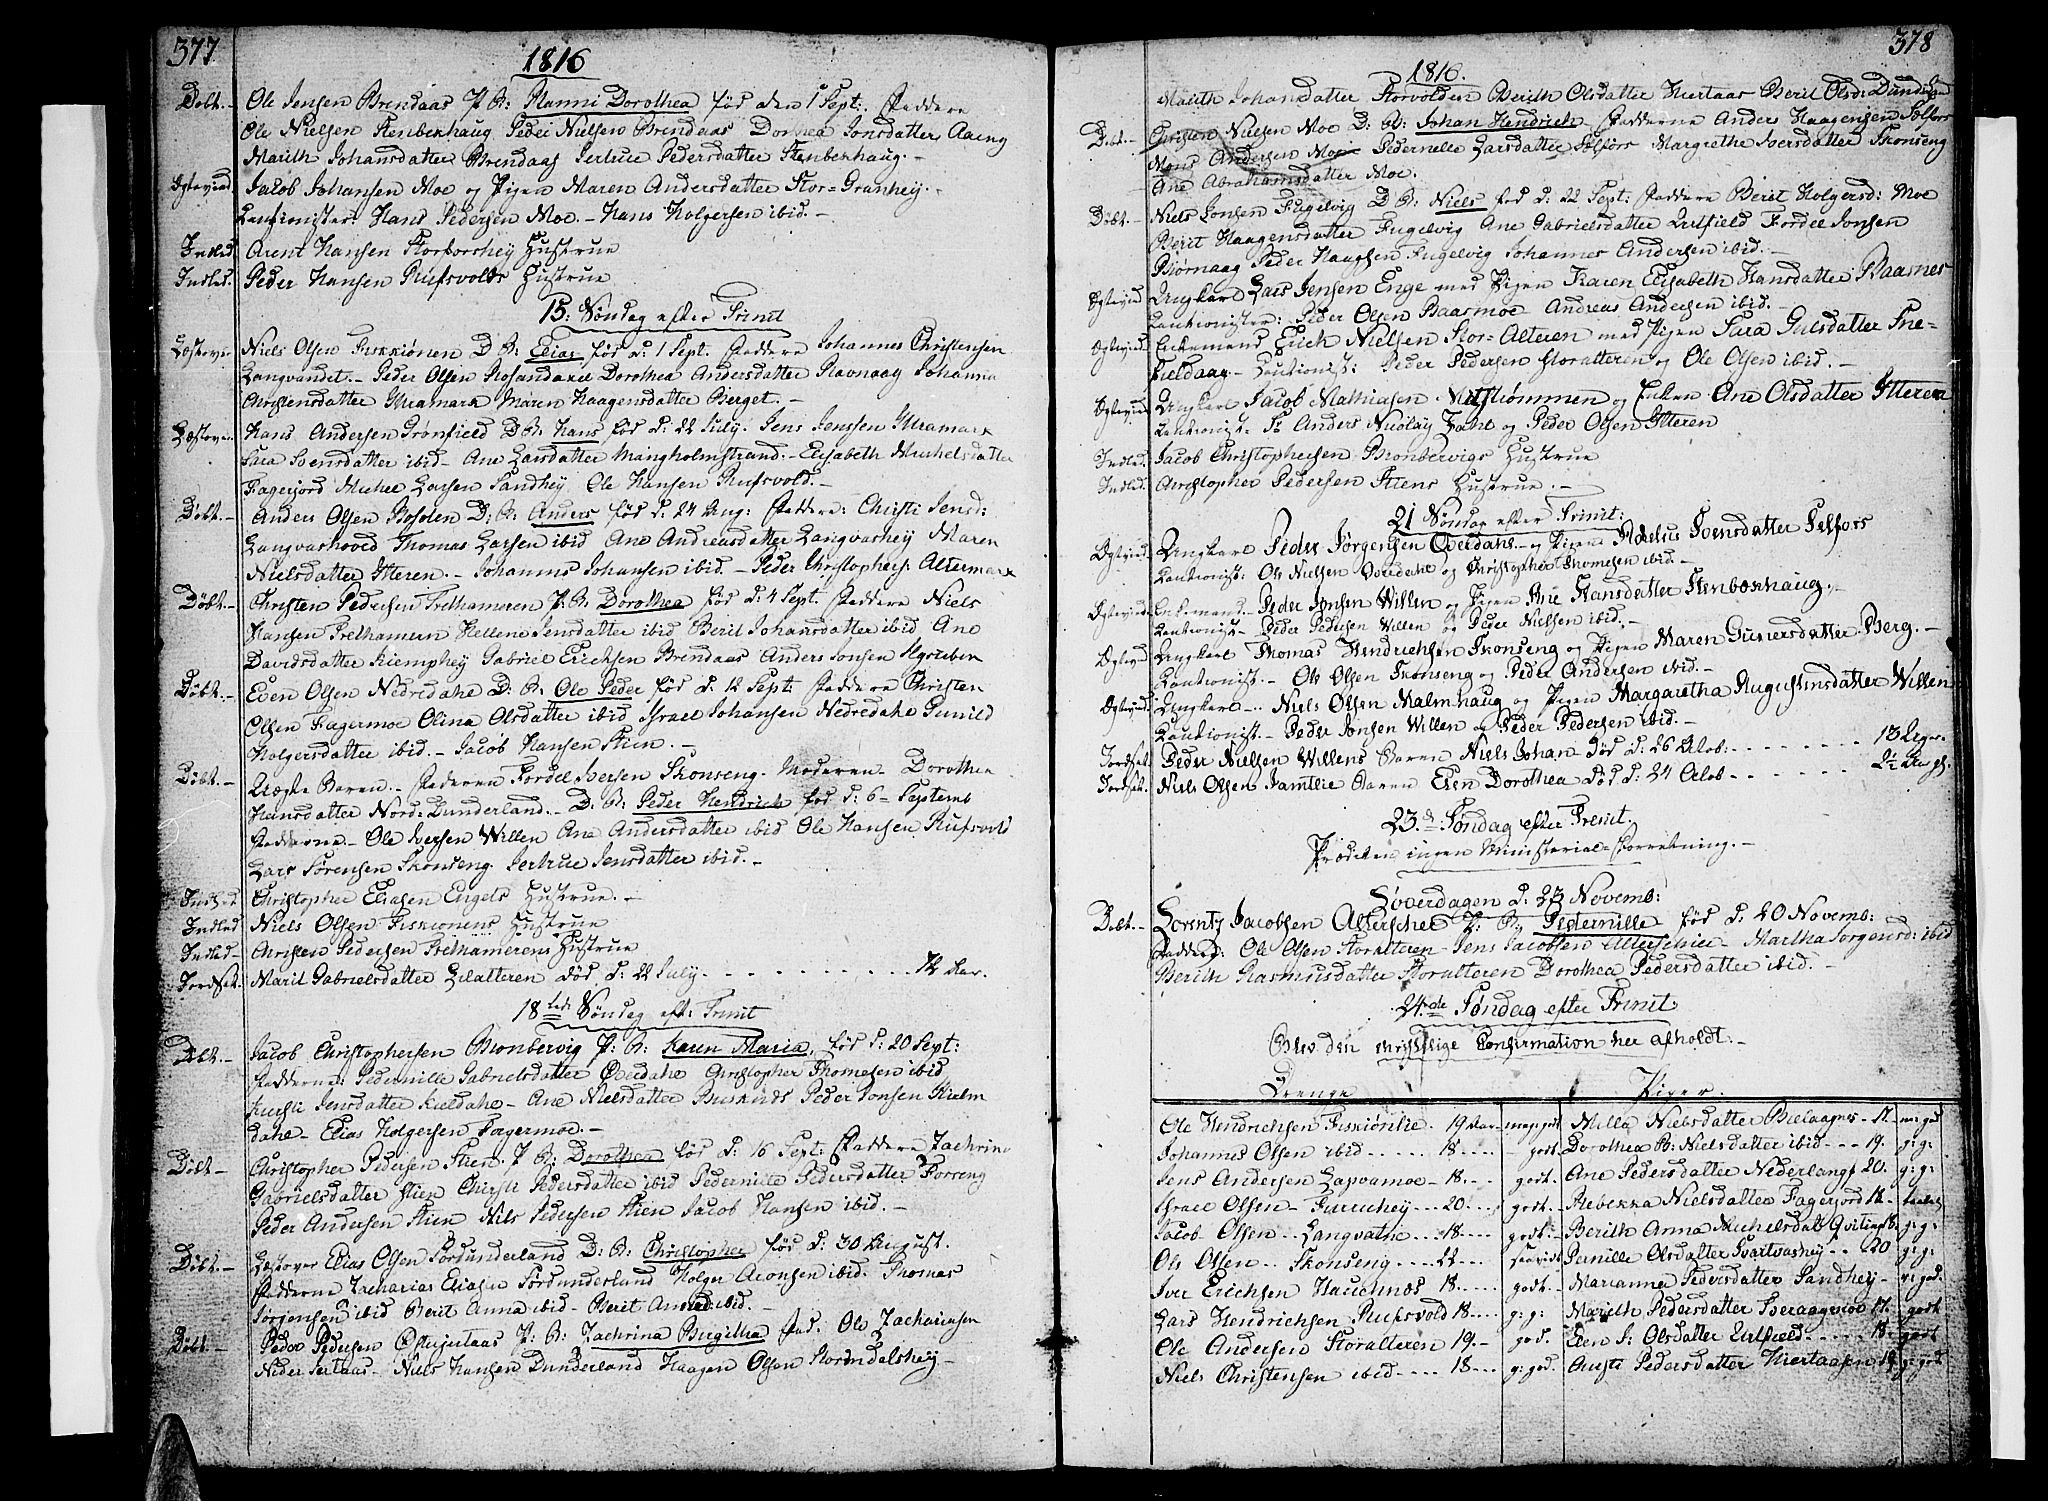 377
1816
Døbt.- Ole Jensen Brendaas P. B: Hanni Dorothea fød den 1 Sept. Faddere
Ole Nielsen Stenbekhaug Peder Nielsen Brendaas Dorthea Jonsdatter Aaeng
Marith Johansdatter Brendaas Sertrue Pedersdatter Stenbekhaug.-
Egteviud Jacob Johansen Moe og Pigen Maren Andersdatter Stor=Granhey.-
Cautionister: Hans Pedersen Moe.- Hans Holgersen ibid.-
Indled Arent Hansen Storforshey Hustrue
Indled. Peder Hansen Rufsvolds Hustrue
15: Søndag efter Trinit
Niels Olsen Fiskkiønen D B: Elias fød d: 1 Sept. Faddere Johannes Christensen
Langvandet.- Peder Olsen Dorothea Andersdatter Ravnaag Johanna
Christensdatter Yttramark Maren Haagensdatter Berget.-
Hans Andersen Grønfield D B. Hans fød d: 22 July. Jens Jenssen Yttramark
Sara Svensdatter ibid- Ane Larsdatter Mangholmstrand.- Elisabeth Michelsdatter
Fagerjord Michel Larsen Sandhey Ole Hansen Rufsvold.-
Døbt.- Anders Olsen D: B: Anders fød d: 24 Aug: Faddere: Christi Jensd:
Langvashoved Thomas Larsen ibid Ane Andreasdatter Langvashey Maren
Nielsdatter Ytteren.- Johannes Johansen ibid.- Peder Christophers. Altermark
Døbt.- Christen Pedersen Trelhameren P: B: Dorothea fød d: 4 Sept. Faddere Niels
Hansen Trelhamern Hellene Jensdatter ibid Berit Johansdatter ibid Ane
Davidsdatter Kiemphey Gabriel Ericksen Brendaas Anders Jonsen
Døbt.- Even Olsen Nedredahl D: B. Ole Peder fød d. 12 Sept. Faddere Christen
Olsen Fagermoe Olina Olsdatter ibid Israel Johansen Nedredahl Gunild
Holgersdatter ibid.- Jacob Hansen Stien.-
Døbt.- Uægte Baren.- Faderen Fordel Iversen Skonseng. Moderen- Dorothea
Hansdatter Nord: Dunderland.- D: B: Peder Hendrich fød d: 6- Septemb
Fadderne- Ole Iversen Willen Ane Andersdatter ibid Ole Hansen Rufsvold
Lars Sørensen Skonseng Sertrue Jensdatter ibid.-
Indled Christopher Eliasen Engels Hustrue.-
Indled Niels Olsen Fiskionens Hustrue
Indled- Christen Pedersen Trelhamerens Hustrue
Jordfæt. Marit Gabrielsdatter Lilalteren død d: 22 July. - - - - 72 Aar.
18de Søndag eft: Trinit
Døbt.- Jacob Christophersen Bronbervig P: B: Karen Maria, fød d: 20 Sept:
Fadderne: Pedernille Gabrielsdatter Overdahl Christopher Thomesen ibid
Kiersti Jensdatter Kieldahl- Ane Nielsdatter Peder Jonsen Hielm
dahl- Elias Holgersen Fagermoe.-
Døbt- Christopher Pedersen Stien P. B: Dorothea fød d: 16 Sept: Faddere Zachrine
Gabrielsdatter Stien Chirsti Pedersdatter ibid Pedernille Pedersdatter Forseng
Peder Andersen Stien Nils Pedersen Stien Jacob Hansen ibid.-
Døbt.- Elias Olsen Sørdunderland D: B: Christopher fød d: 30 August.
Fadderne Zacharias Eliasen Sørdunderland Holger Aronsen ibid. Thomas
Jørgensen ibid Berit Anna ibid- Berit ibid.-
Døbt.- Peder Pedersen P: B: Zachrina Birgitha Fad: Ole Zachariasen
Neder - Niels Hansen Dunderland Haagen Olsen Stormdalshey-
378
1816.
Marith Johansdatter Storvolden Berith Olsdatter Hiertaas Berit Olsd:
Døbt.- Christen Nielsen Moe D: B: Johan Hendrich- Fadderne Anders Haagensen Selfors
Mons Andersen Moe Pedernelle Larsdatter Selfors Margrethe Iversdatter Skonseng
Ane Abrahamsdatter Moe.
Døbt.- Niels Jonsen Fugelvig D B: Niels fød d: 22 Sept: Faddere Berit Holgersd: Moe
Berit Haagensdatter Fugelvig Ane Gabrielsdatter Urtfield Fordel Jonsen
Biørnaag Peder Haagsen Fugelvig Johannes Andersen ibid.-
Egteviud Ungkarl Lars Jensen Enge med Pigen Karen Elisabeth Hansdatter Baasnes
Cautionister: Peder Olsen Baasmoe- Andreas Andersen ibid.-
Egteviud. Enkemand Erich Nielsen Stor=Alteren med Pigen Sara Pulsdatter Sne=
fieldaag- Cautionist: Peder Pedersen Storalteren og Ole Olsen ibid.-
Egteviud. Ungkarl Jacob Mathiasen og Enken Ane Olsdatter Ytteren
Cautionist- Sr Anders Nicolay Zahl og Peder Olsen Ytteren
Indled. Jacob Christophersen Bronbervigs Hustrue
Indled. Christopher Pedersen Stiens Hustrue.-
21 Søndag efter Trinit:
Egteviud. Ungkarl Peder Jørgensen Overdahl- og Pigen Svensdatter Selfors
Cautionist: Ole Nielsen Overdahl og Christopher Thomesen ibid.-
Egteviud. Enkemand.- Peder Jonsen Willen og Pigen Ane Hansdatter Stenboxhaug.-
Cautionist- Peder Pedersen Willen og Peder Nielsen ibid.-
Egteviud Ungkarl Thomas Hendrichsen Skonseng og Pigen Maren Gunersdatter Berg.-
Cautionist.- Ole Olsen Skonseng og Peder Andersen ibid.-
Egteviud. Ungkarl- Niels Olsen Malmhaug og Pigen Margaretha Augustinsdatter Willen
Cautionist- Peder Jonsen Willen og Peder Pedersen ibid.-
Jordfæt. Peder Nielsen Willens Baren Niels Johan død d: 26 Octob: - - - - 13 Uger.
Jordfæt. Niels Olsen Jamtlie Baren Elen Dorothea død d: 24 Octob - - - - 2½ Aar gl.
23.de Søndag efter Trinit.
Prædiken ingen Ministerial=Forretning.-
Løverdagen d: 23 Novemb:
Døbt.- Lorentz Jacobsen Alterscher P: B: Pedernille fød d: 20 Novemb:
Faddere: Ole Olsen Storalteren- Jens Jacobsen Alterschier- Martha Jørgensd: ibid
Berith Rasmusdatter Storalteren Dorothea Pedersdatter ibid.-
24.de Søndag efter Trinit
Blev den Confirmation her afholdt.-
Drenge Piger.
Ole Hendrichsen Fiskiønlie. 19 Aar- meget god Milla Nielsdatter Bielaagnes- 17.- m: god
Johannes Olsen ibid . . . . 18 - - - godt. Dorothea B: Nielsdatter ibid - - - 19. g: g:
Jens Andersen - 18. - - godt. Ane Pedersdatter Nederlangf 20. g: g:
Israel Olsen - 20 . . . godt. Rebekka Nielsdatter Fagerjord 18-
Jacob Olsen . . Langvatn - 18 - - - godt. Berith Anna Michelsdatt 18. g: g:
Ole Olsen . . Skonseng - - 22 - - Pernille Olsdatter Svartvashey . . 20 g: g:
Iver Erichsen Hauchnæs - 18. - - - godt. Marianna Pedersdatter Sandhey- g: god.
Lars Hendrichsen Rufsvold 18. - - g: g: Marith Pedersdatter 17. godt
Ole Andersen Storalteren 19. - god. Elen S: Olsdatter Urtfield. - - - 18. godt
Niels Christensen ibid - - - 18 - - g: god. Pedersdatter Hiertaasen 19 g: god